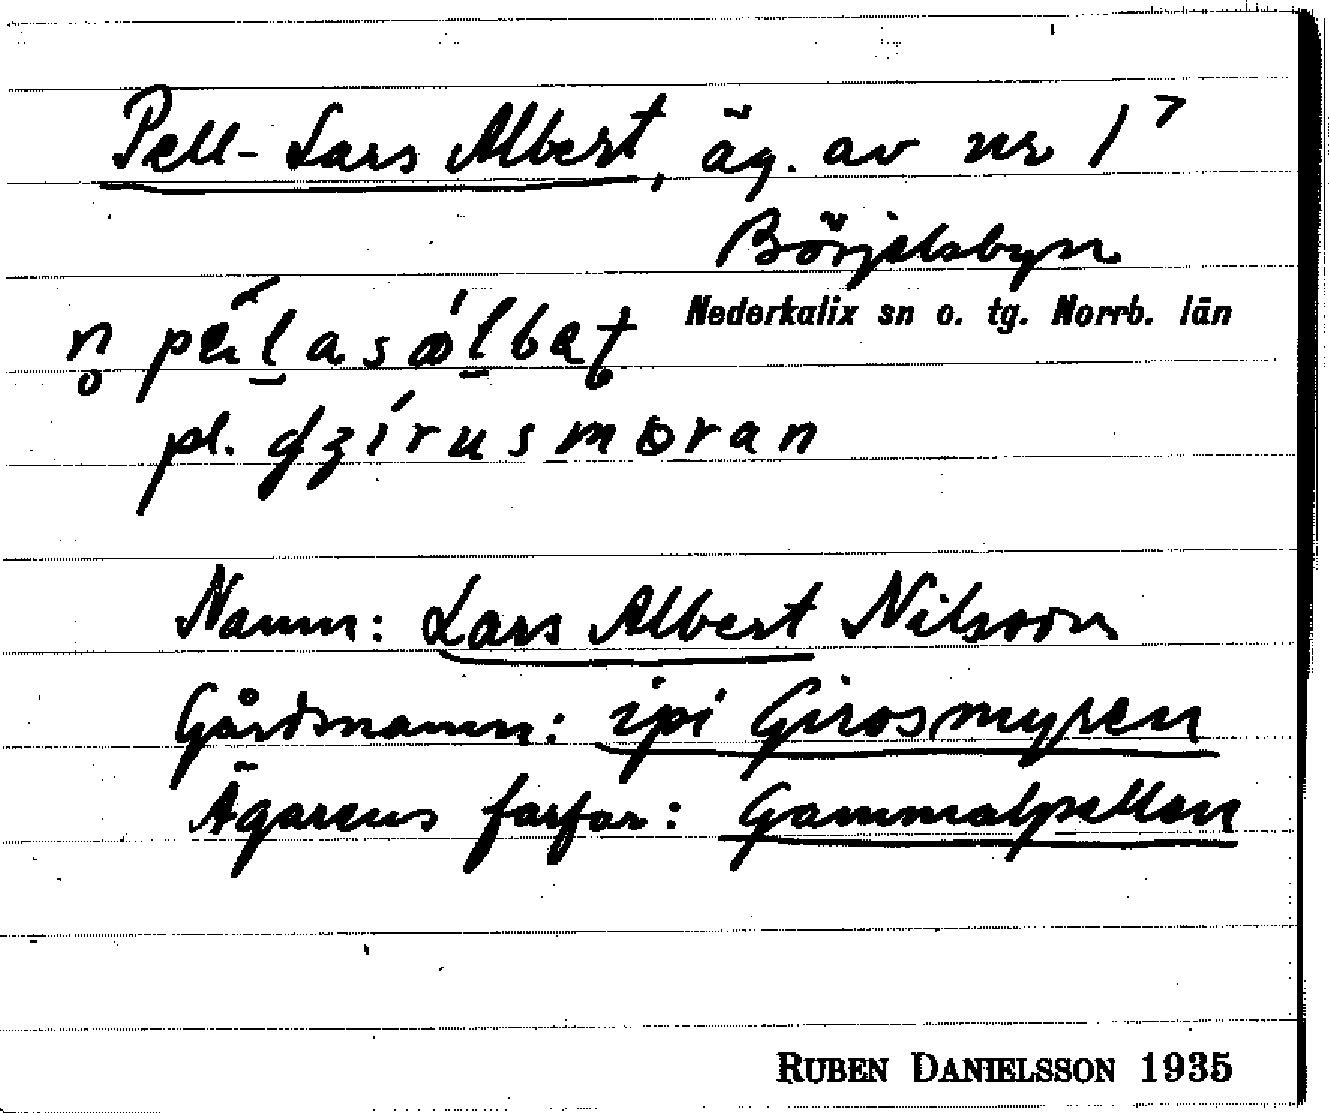 Pell-Lars Albert, äg. av nr 1⁷
Börjelsbyn
Nederkalix sn o. tg. Norrb. län
pl.
Namn: Lars Albert Nilsson
Gårdsnamn: ipi Girosmyren
Ägarens farfar: Gammalpellen
RUBEN DANIELSSON 1935